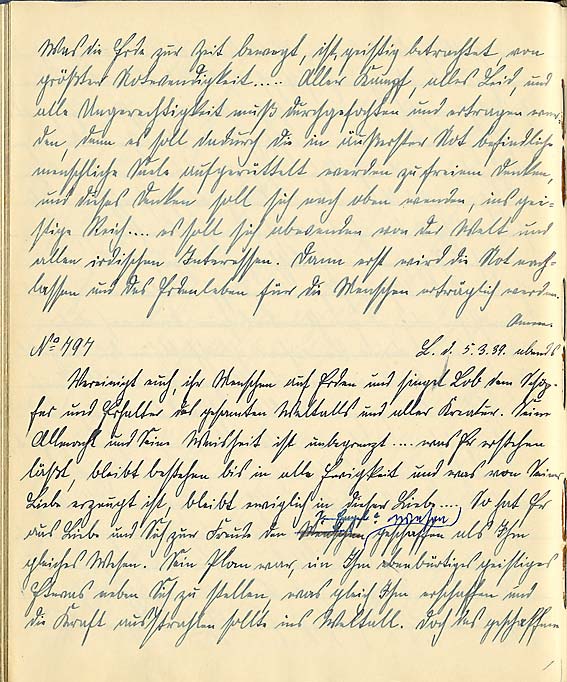 Was die Erde zur Zeit bewegt, ist, geistig betrachtet, von
größter Notwendigkeit.... Aller Kampf, alles Leid, und
alle Ungerechtigkeit muß durchgefochten und ertragen wer-
den, denn es soll dadurch die in äußerster Not befindliche
menschliche Seele aufgerüttelt werden zu freiem Denken,
und dieses Denken soll sich nach oben wenden, ins gei-
stige Reich.... es soll sich abwenden von der Welt und
allen irdischen Interessen. Dann erst wird die Not nach-
lassen und das Erdenleben für die Menschen erträglich werden.
Amen.
No 794 B. d. 5.3.39. abends
Vereinigt euch, ihr Menschen auf Erden und singet Lob dem Schöp-
fer und Erhalter des gesamten Weltalls und aller Kreatur. Seine
Allmacht und Seine Weisheit ist unbegrenzt.... was Er erstehen
läßt, bleibt bestehen bis in alle Ewigkeit und was von Seiner
Liebe erzeugt ist, bleibt ewiglich in dieser Liebe.... So hat Er
(Engel Wesen)
aus Liebe und Sich zur Freude den Menschen geschaffen als Ihm
gleiches Wesen. Sein Plan war, ein Ihm ebenbürtiges geistiges
Etwas neben Sich zu stellen, was gleich Ihm erschaffen und
die Kraft ausstrahlen sollte ins Weltall. Doch das geschaffene